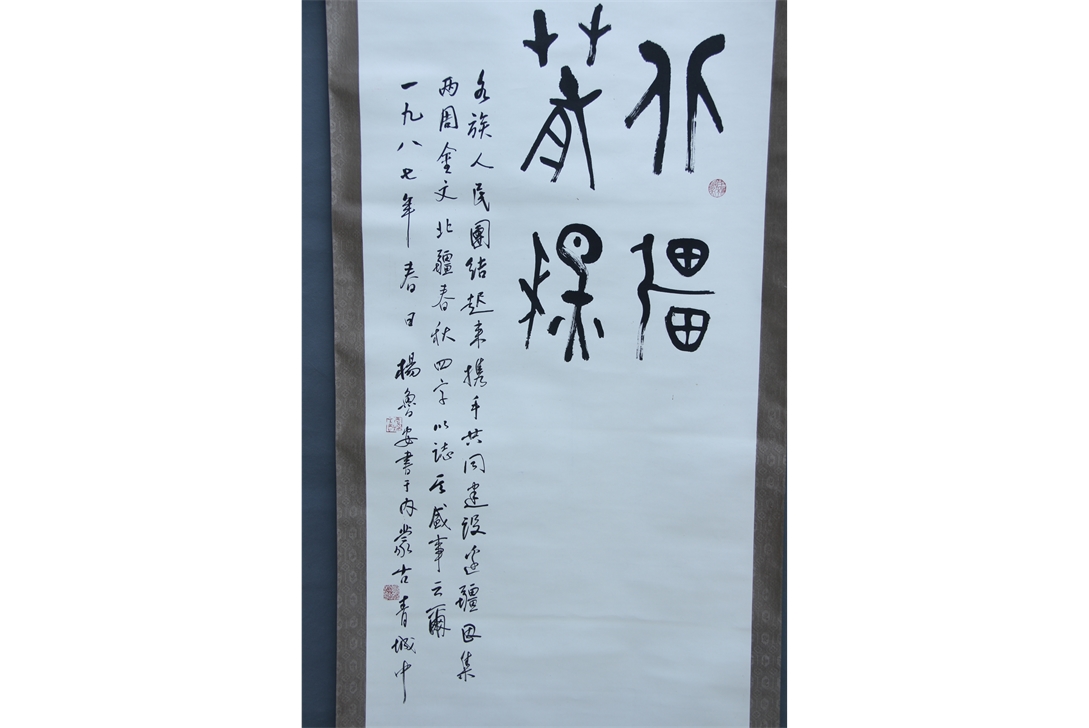 北疆
春秋
各族人民團结起来携手共同建设边疆因集
两周金文北疆春秋四字以誌其盛事云爾
一九八七年春日楊魯安書于内蒙古青城中